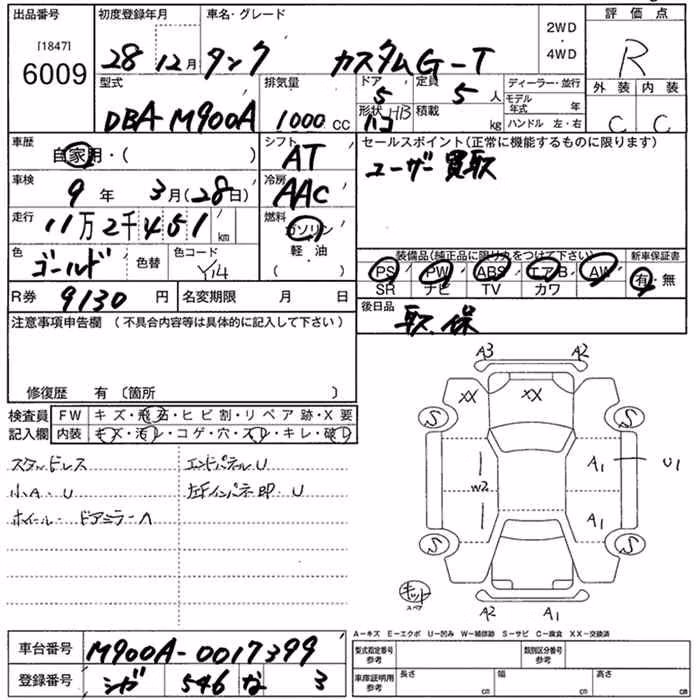 出品番号 初度登録年月 車名・グレード 評価点
[1847]
6009
28年12月 タンク カスタムG-T
2WD
・
4WD
R
型式 排気量 ドア 5 定員 5 人 ディーラー・並行 外装 内装
DBA-M900A 1000 cc 形状 ハコ HB 積載 kg モデル年式 年
ハンドル 左・右
C C
車歴 自家用・( ) シフト AT セールスポイント(正常に機能するものに限ります)
ユーザー買取
車検 9年 3月(28日) 冷房 AAC
走行 11万2千451 km 燃料 ガソリン
軽・油
( )
色 ゴールド 色替 色コード Y14
装備品(純正品に限り丸をつけて下さい) 新車保証書
PS PW ABS エアB AW 有・無
SR ナビ TV カワ
R券 9130 円 名変期限 月 日
後日品 取、保
注意事項申告欄 (不具合内容等は具体的に記入して下さい)
修復歴 有 〔箇所 〕
検査員 FW キズ・飛石・ヒビ割・リペア跡・X要
記入欄 内装 キズ・汚レ・コゲ・穴・スレ・キレ・破レ
スタッドレス エンドパネルU
小A・U 左Fインパネ部・U
ホイール・ドアミラーヘ
A3 A2
XX XX
S S
A1 U1
W2
A1
S S
キット
スペア
A2 A1
A−キズ E−エクボ U−凹み W−補修跡 S−サビ C−腐食 XX−交換済
車台番号 M900A-0017399
型式指定番号 参考 類別区分番号 参考
登録番号 シガ 546 な 3
車庫証明用 参考 長さ cm 幅 cm 高さ cm